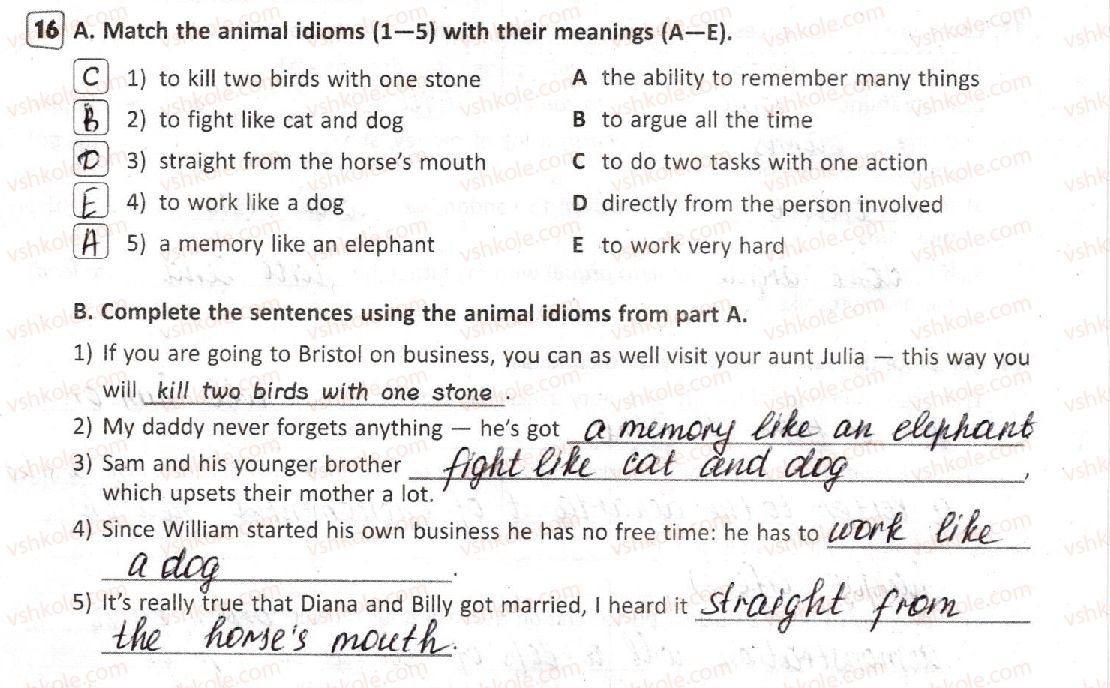 16 A. Match the animal idioms (1—5) with their meanings (A—E).
C 1) to kill two birds with one stone A the ability to remember many things
B 2) to fight like cat and dog B to argue all the time
D 3) straight from the horse's mouth C to do two tasks with one action
E 4) to work like a dog D directly from the person involved
A 5) a memory like an elephant E to work very hard
B. Complete the sentences using the animal idioms from part A.
1) If you are going to Bristol on business, you can as well visit your aunt Julia — this way you
will kill two birds with one stone.
2) My daddy never forgets anything — he's got a memory like an elephant
3) Sam and his younger brother fight like cat and dog,
which upsets their mother a lot.
4) Since William started his own business he has no free time: he has to work like
a dog.
5) It's really true that Diana and Billy got married, I heard it straight from
the horse's mouth.
vshkole.com